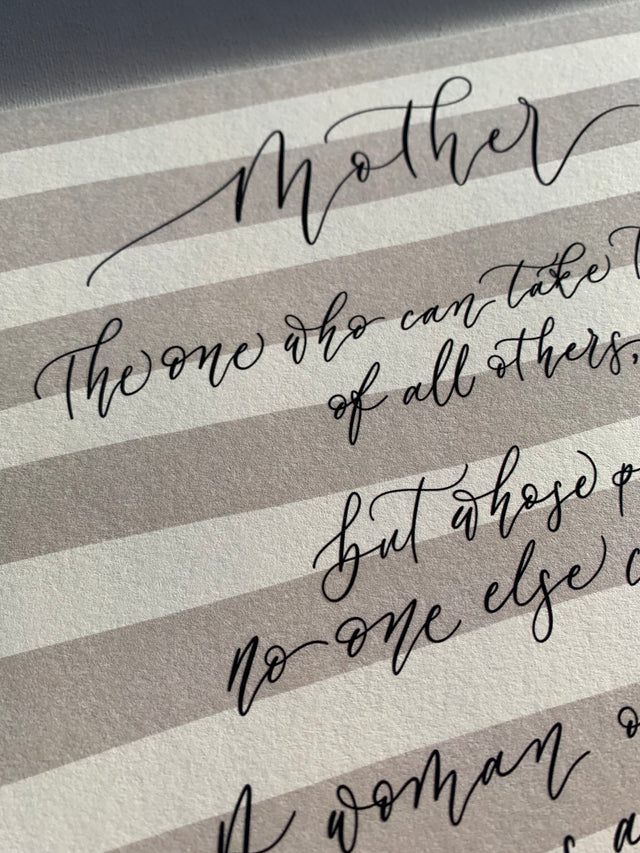 Mother
The one who can take
of all others,
but whose
no one else
A woman